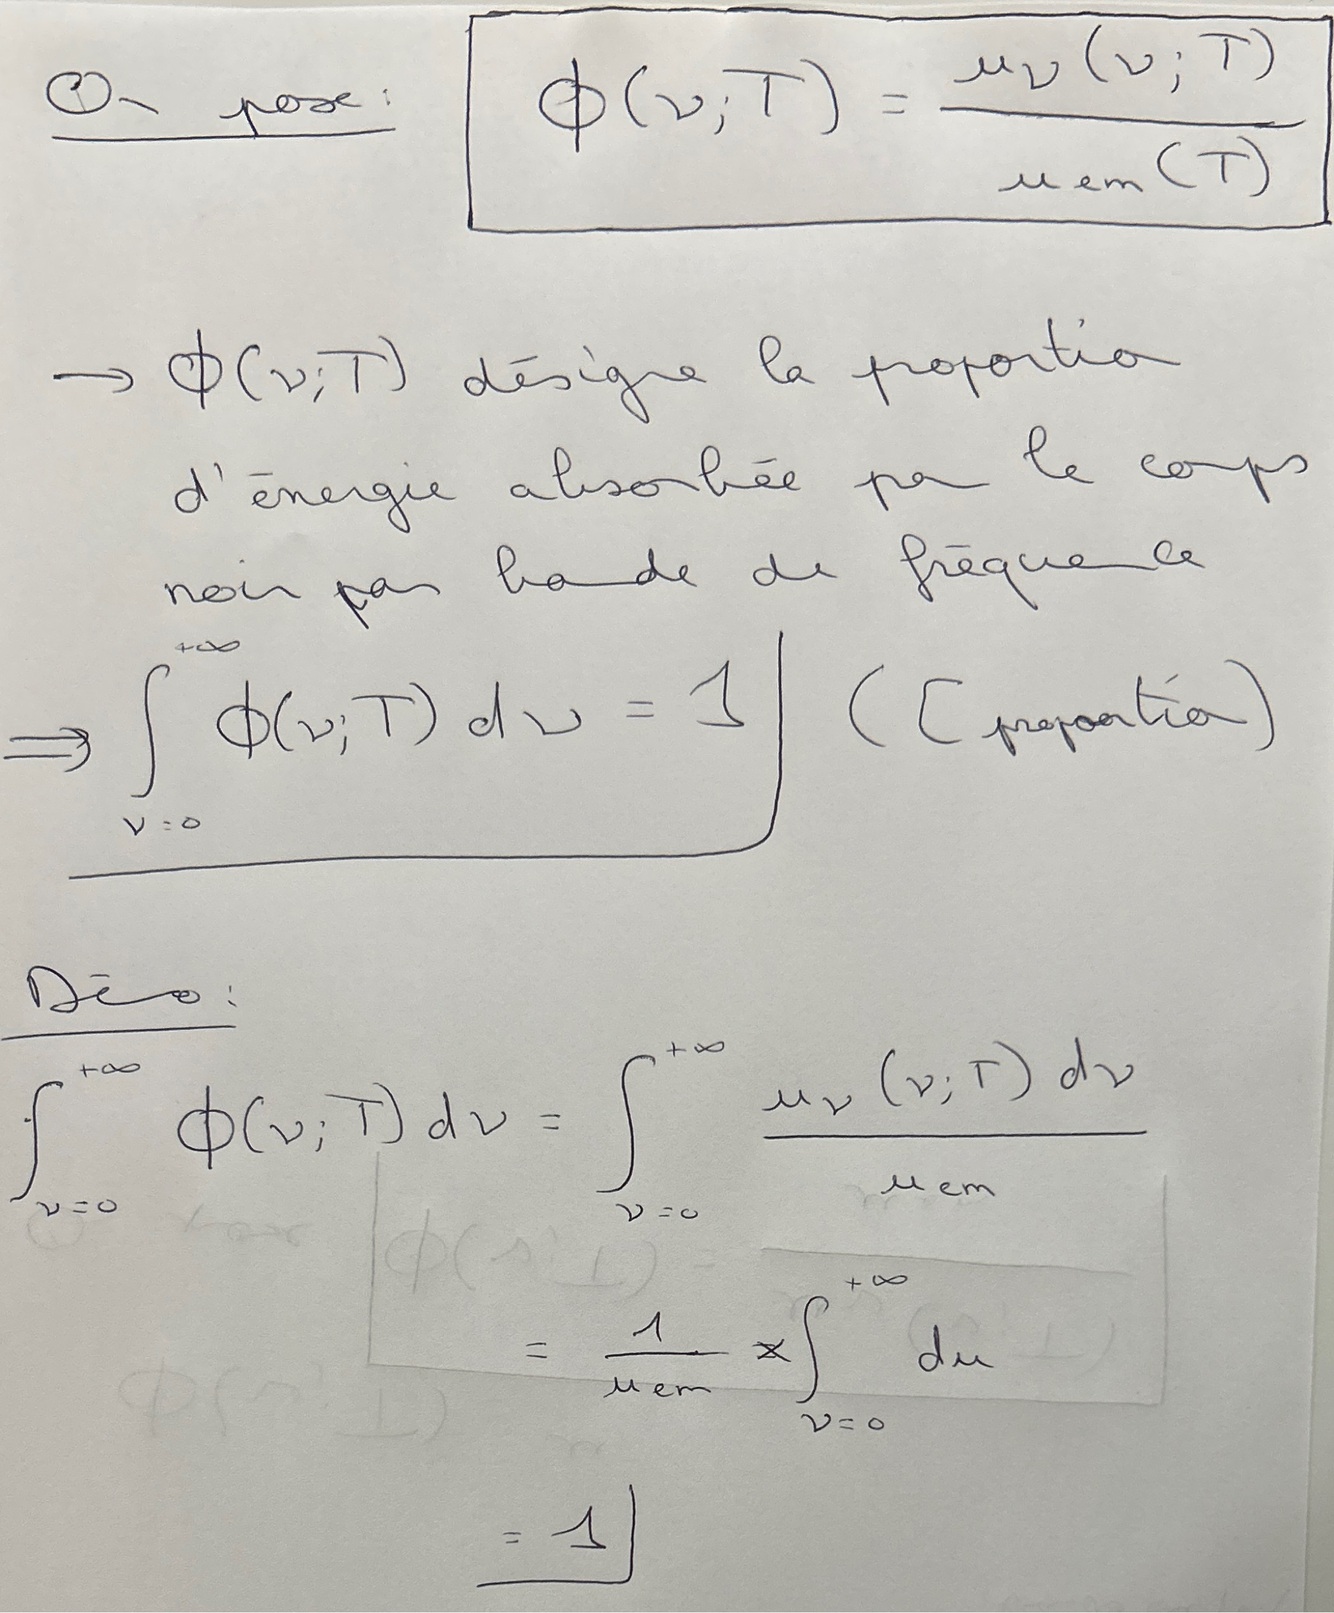 On pose : ϕ(ν;T) = uν(ν;T) / uem(T)
→ ϕ(ν;T) désigne la proportion
d'énergie absorbée par le corps
noir par bande de fréquence
⇒ ∫_{ν=0}^{+∞} ϕ(ν;T) dν = 1 ( proportion)
Démo :
∫_{ν=0}^{+∞} ϕ(ν;T) dν = ∫_{ν=0}^{+∞} uν(ν;T) dν / uem
= 1/uem × ∫_{ν=0}^{+∞} du
= 1